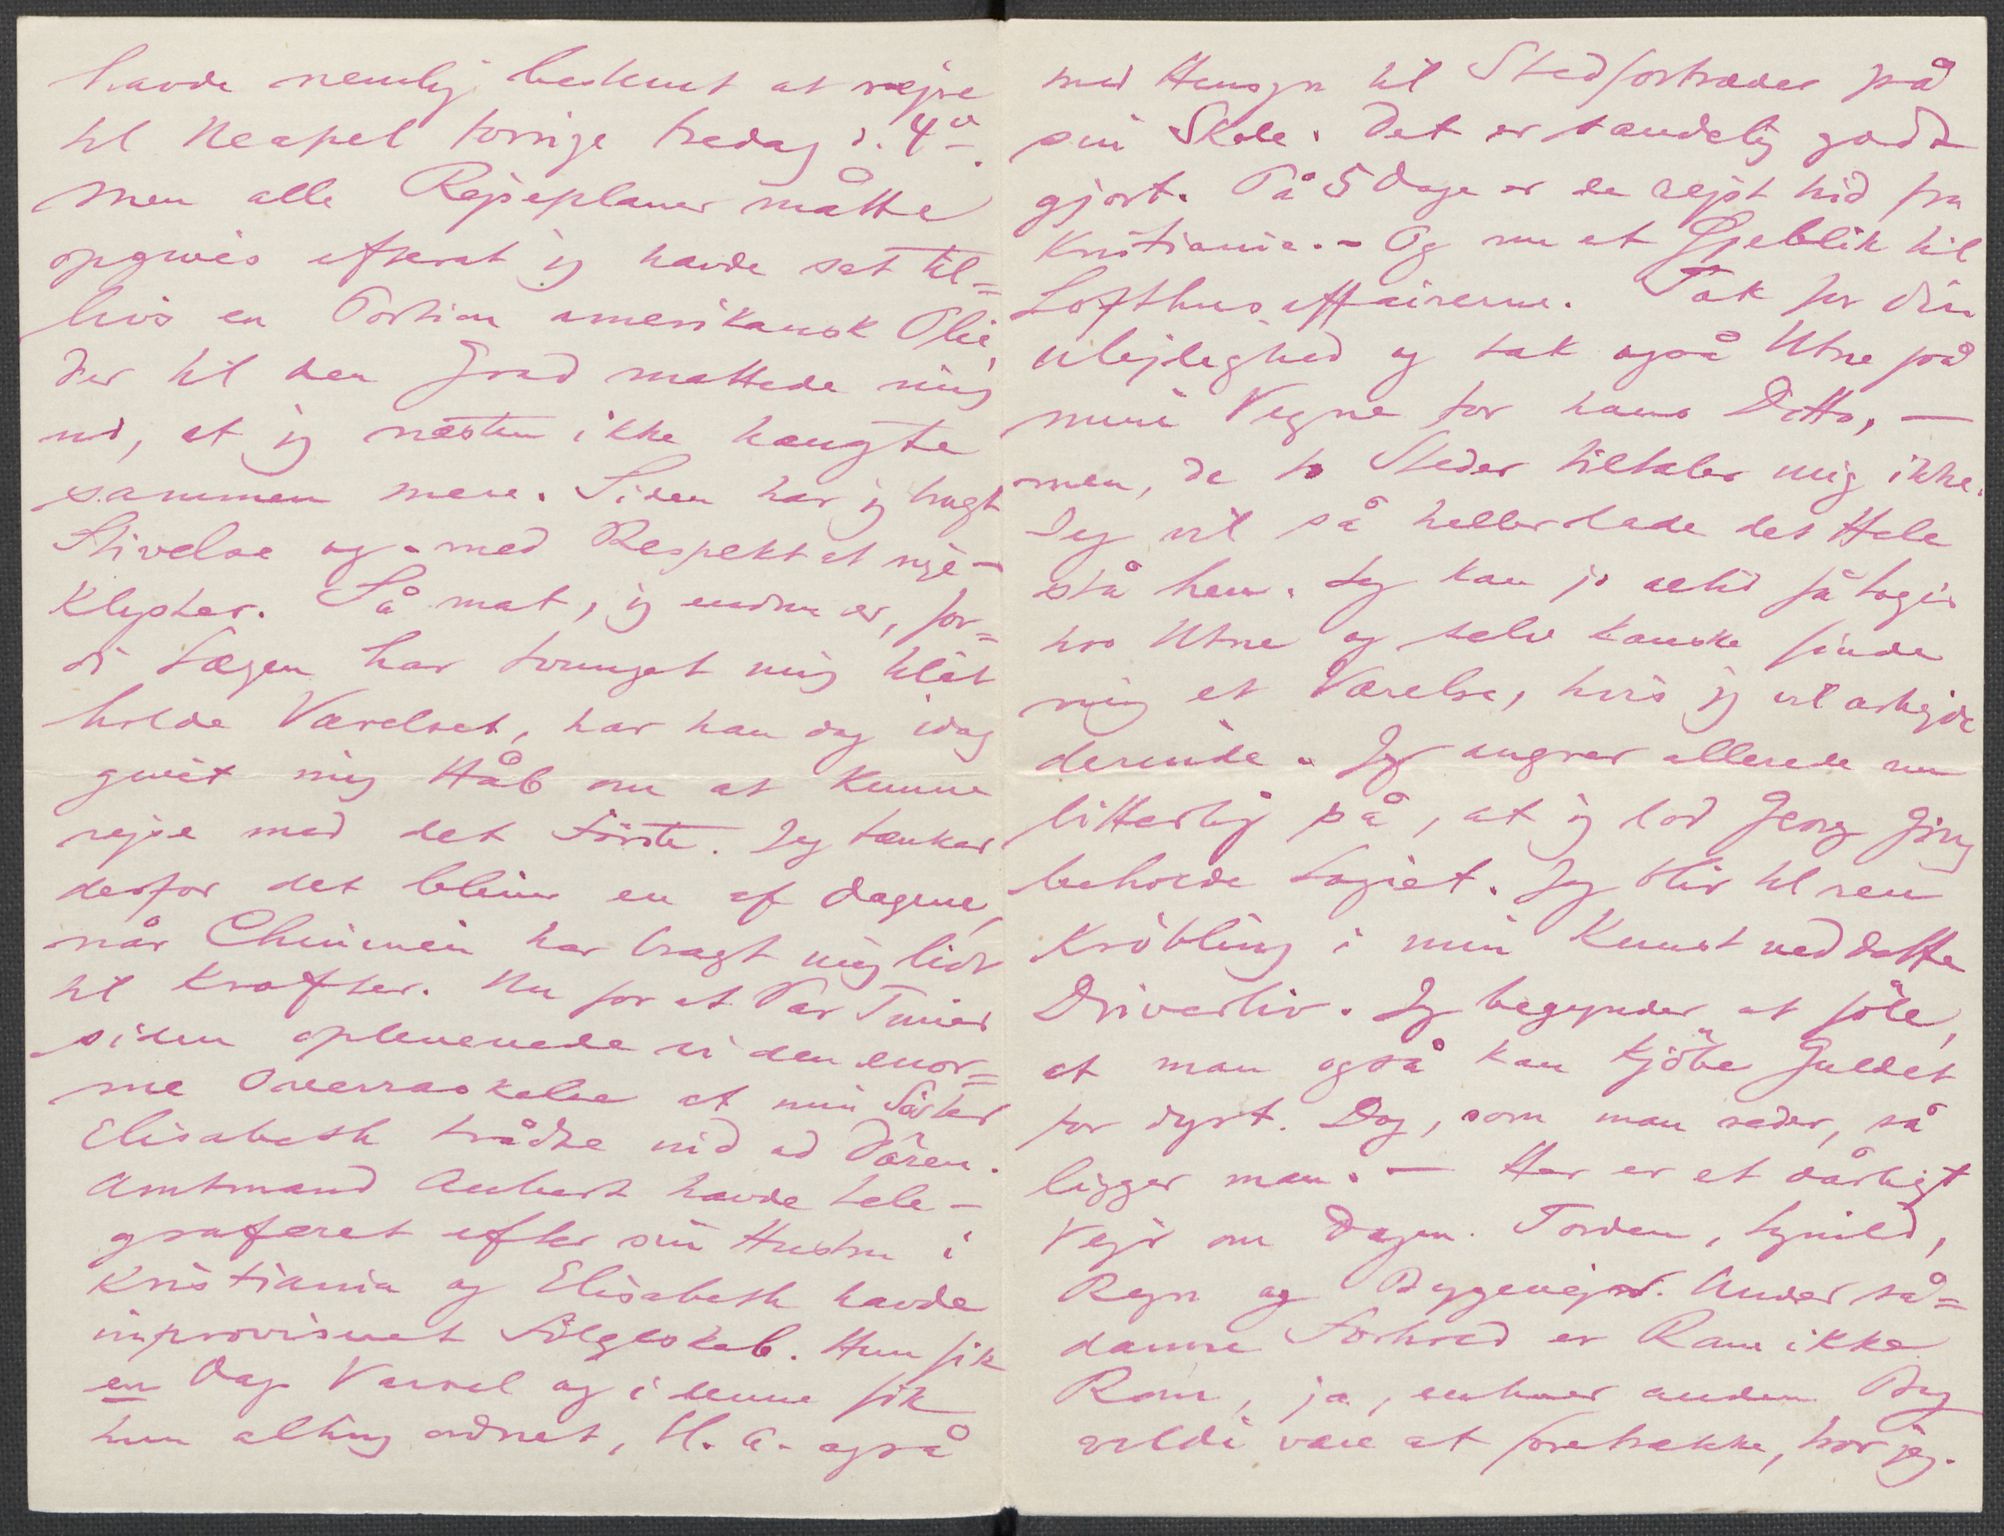 havde nemlig bestemt at rejse
til Neapel forrige tredag d. 4de.
Men alle Rejseplaner måtte
opgives efterat jeg havde sat til=
livs en Portion amerikansk Olie,
der til den Grad mattede mig
ud, at jeg næsten ikke hængte
sammen mere. Siden har jeg brugt
Stivelse og – med Respekt at sige –
Klyster. Så mat, jeg endnu er, for=
di Lægen har tvunget mig til at
holde Værelset, har han dog idag
givet mig Håb om at kunne
rejse med det Første. Jeg tænker
derfor det bliver en af Dagene,
når Chininen har bragt mig lidt
til Kræfter. Nu for et Par Timer
siden oplevede vi den enor=
me Overraskelse at min Söster
Elisabeth trådte ind ad Dören.
Amtmand Aubert havde tele-
graferet efter sin Hustru i
Kristiania og Elisabeth havde
improviseret Fölgeskab. Hun fik
en Dags Varsel og i denne fik
hun alting ordnet, bl. a. også
med Hensyn til Stedfortræder på
sin Skole. Det er sandelig godt
gjort. På 5 Dage er de rejst hid fra
Kristiania. – Og nu et Øjeblik til
Lofthusaffairerne. Tak for din
Ulejlighed og tak også Utne på
mine Vegne for hans Ditto, –
men, de to Steder tiltaler mig ikke.
Jeg vil så heller lade det Hele
stå hen. Jeg kan jo altid få Logis
hos Utne og selv kanske finde
mig et Værelse, hvis jeg vil arbejde
derinde. Jeg angrer allerede nu
bitterlig på, at jeg lod Georg Grieg
beholde Logiet. Jeg blir til ren
Kröbling i min Kunst ved dette
Driverliv. Jeg begynder at föle,
at man også kan kjöbe Guldet
for dyrt. Dog, som man reder, så
ligger man. – Her er et dårligt
Vejr om Dagen. Torden, Lynild,
Regn og Bygevejr. Under så=
danne Forhold er Rom ikke
Rom, ja, enhver anden By
vilde være at foretrække, tror jeg.